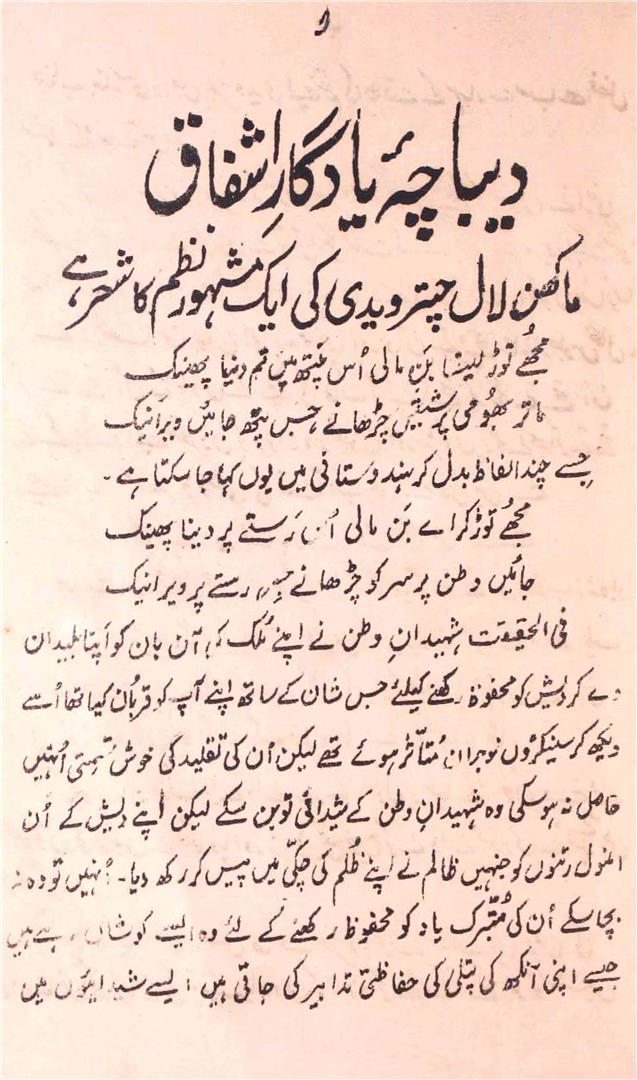 ۹
دیباچۂ یادگارِ اشفاق
ماکھن لال چترویدی کی ایک مشہور نظم کا شعر ہے
مجھے توڑ لینا بَن مالی اُس پَتھ میں تم دینا پھینک
ماتر بھُومی پر شیش چڑھانے جس پتھ جائیں ویر انیک
جسے چند الفاظ بدل کر ہندوستانی میں یوں کہا جا سکتا ہے۔
مجھے توڑ کر اے بَن مالی اُس رَستے پر دینا پھینک
جائیں وطن پر سر کو چڑھانے جس رستے پر ویر انیک
فی الحقیقت شہیدانِ وطن نے اپنے مُلک کی آن بان کو اپنا بلیدان
دے کر دیش کو محفوظ رکھنے کیلئے جس شان کے ساتھ اپنے آپ کو قربُان کیا تھا اُسے
دیکھ کر سینکڑوں نوجوان مُتاثّر ہوئے تھے لیکن اُن کی تقلید کی خوش قسمتی اُنہیں
حاصل نہ ہو سکی وہ شہیدانِ وطن کے شیدائی تو بن سکے لیکن اپنے دیش کے اُن
انمول رتنوں کو جنہیں ظالم نے اپنے ظُلم کی چکّی میں پیس کر رکھ دیا۔ اُنہیں تو وہ نہ
بچا سکے اُن کی مُتبّرک یاد کو محفوظ رکھنے کے لئے وہ ایسے کوشاں رہے ہیں
جیسے اپنی آنکھ کی پتلی کی حفاظتی تدابیر کی جاتی ہیں ایسے شیدائیوں میں